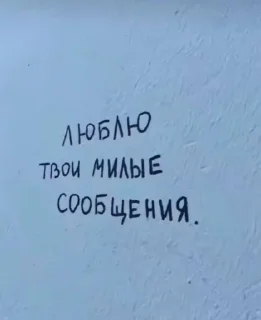 ЛЮБЛЮ
ТВОИ МИЛЫЕ
СООБЩЕНИЯ.